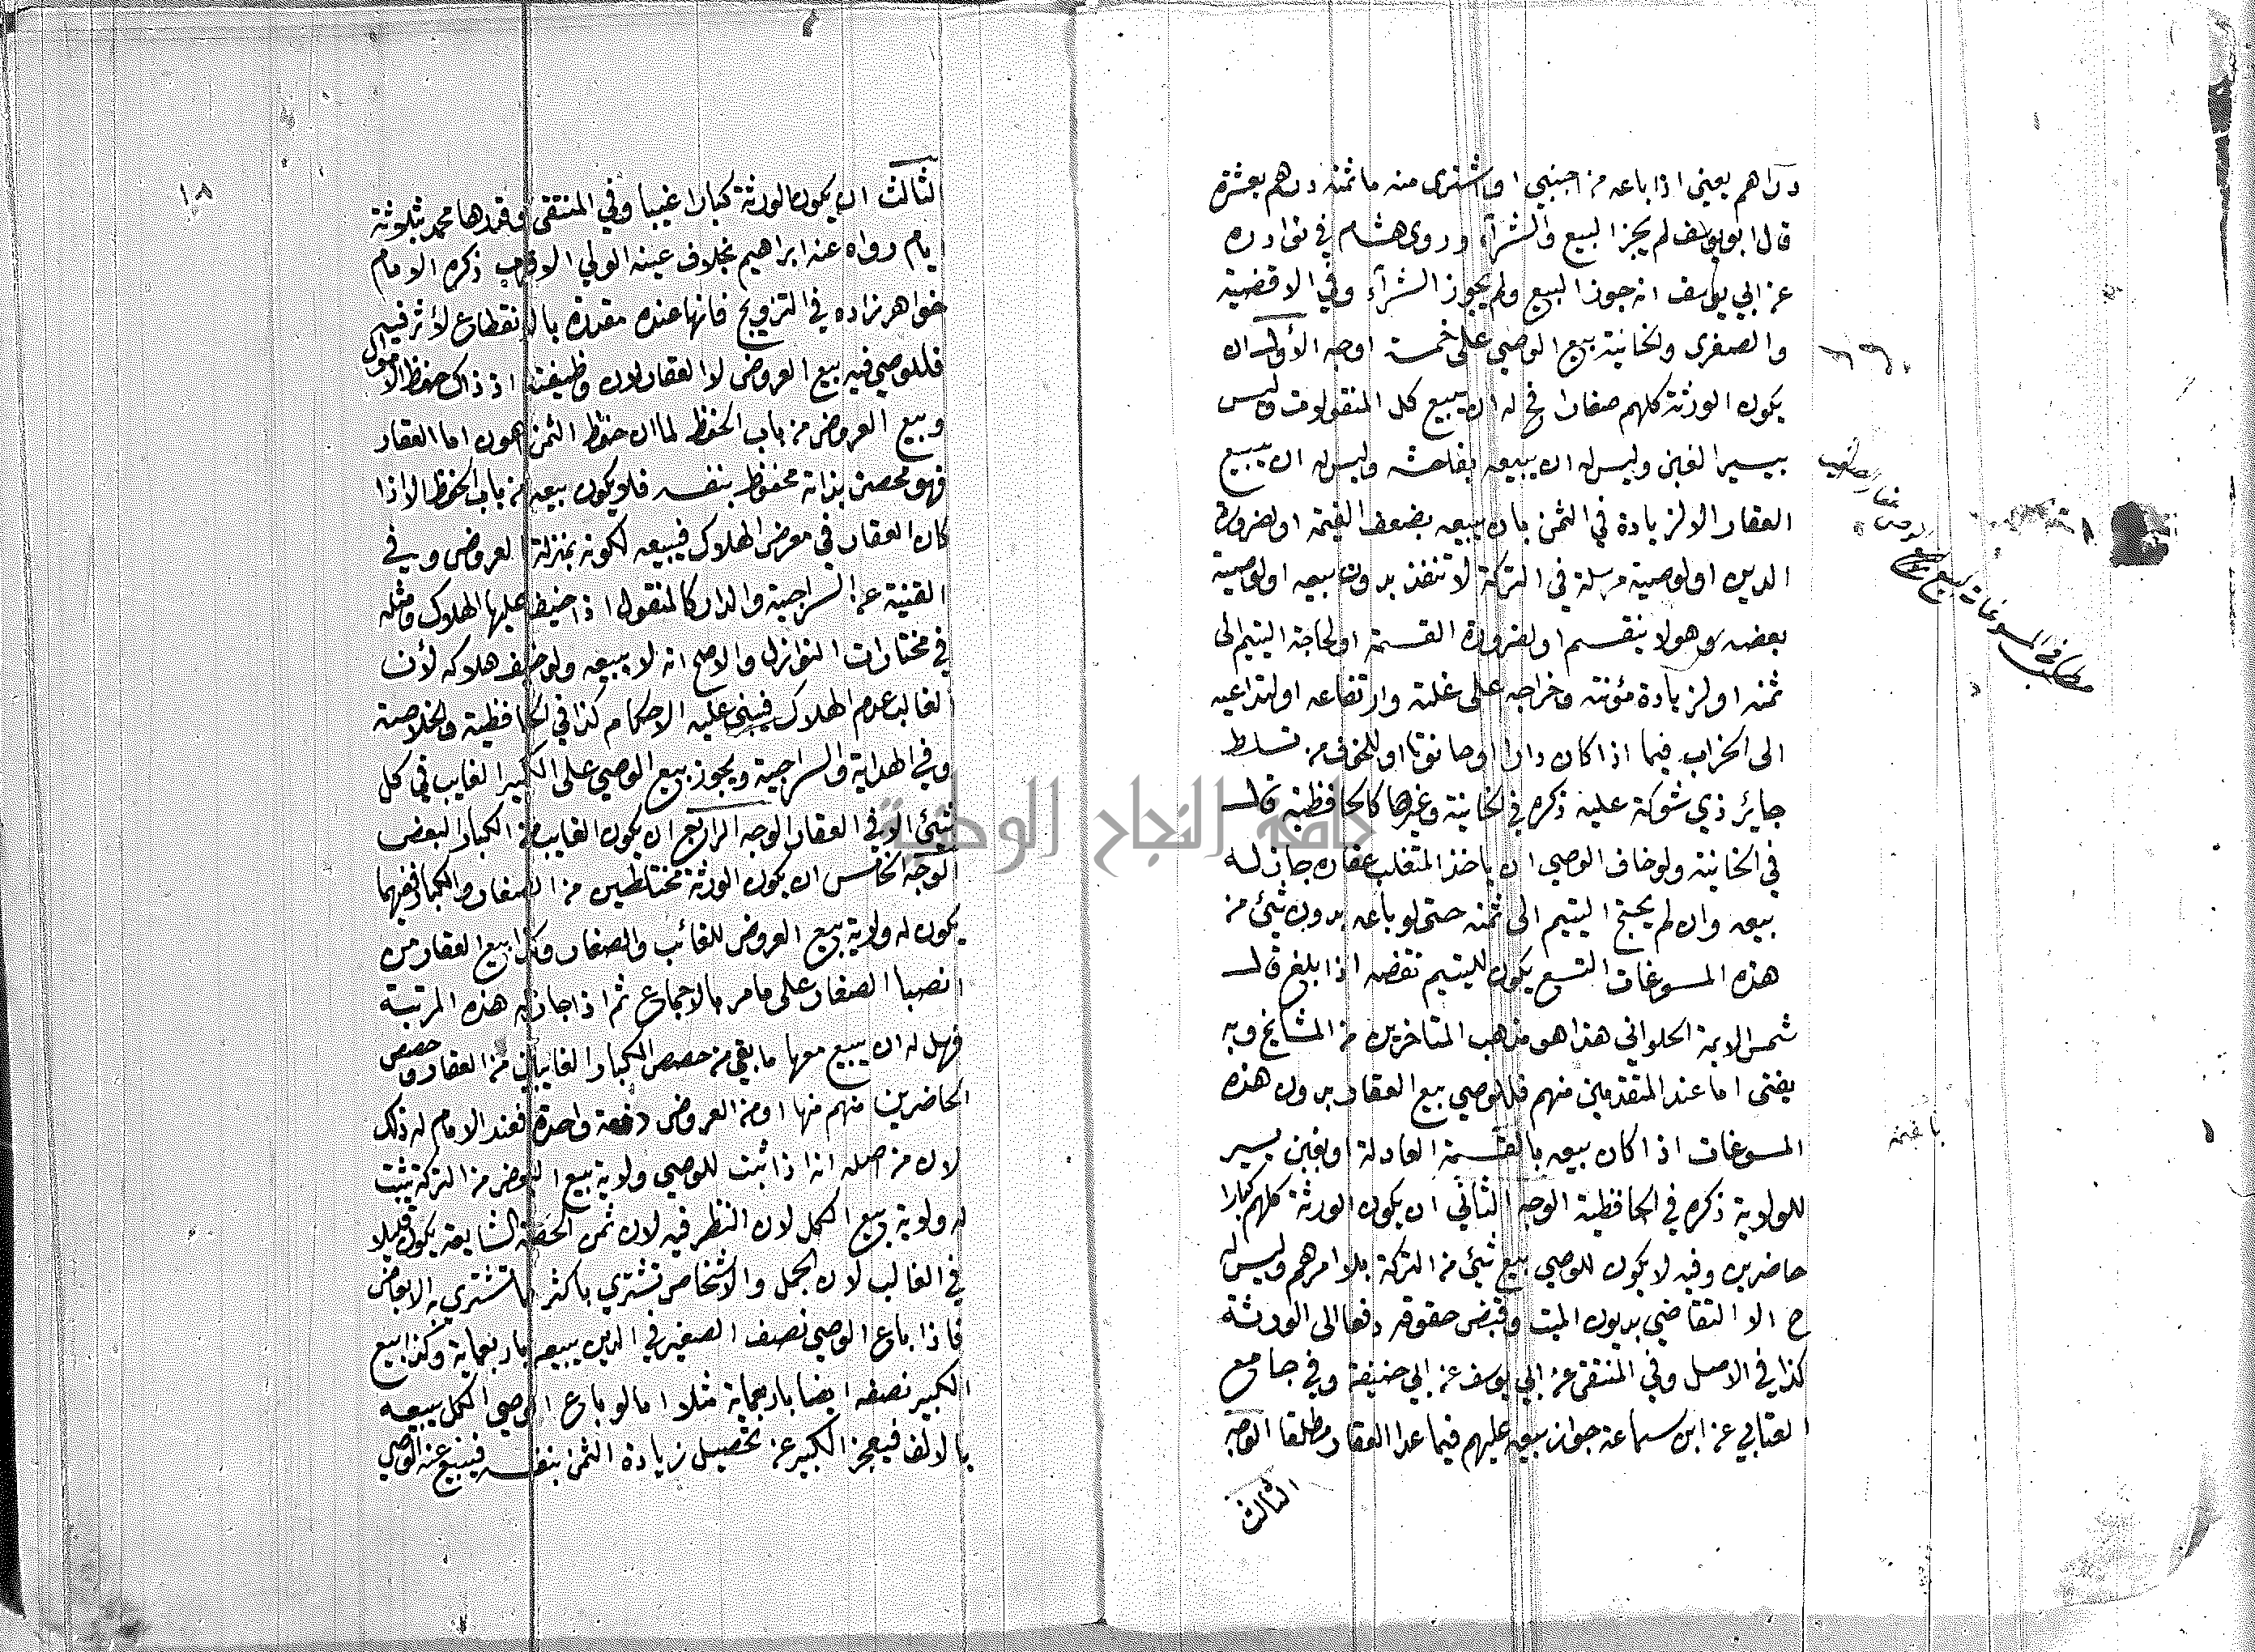 دراهم يعني اذا باعه من اجنبي او اشترى منه ما ثمنه درهم بعشرة
قال ابو يوسف لم يجز البيع والشرآء وروى هشام في نوادره
عن ابي يوسف انه جوز البيع ولم يجوز الشرآء وفي الاقضية
والصغرى والخانية بيع الوصي على خمسة اوجه الأول ان
يكون الورثة كلهم صغارا فح له ان يبيع كل المنقولات وليس
بيسير الغبن وليس له ان يبيعه بفاحشه وليس له ان يبيع
العقار الا لزيادة في الثمن بان يبيعه بضعف القيمة او لضرورة
الدين او لوصية مرسلة في التركة لا تنفذ بدون بيعه او لوصية
بعضه وهو لا ينقسم او لضرورة القسمة او لحاجة اليتيم الى
ثمنه او لزيادة مؤنته وخراجه على غلته وارتفاعه او لتداعيه
الى الخراب فيما اذا كان دارا او حانوتا او للخوف من تسلط
جاير ذي شوكة عليه ذكره في الخانية وغيرها كالحافظية قال
في الخانية ولو خاف الوصي ان ياخذ المتغلب عقاره جاز له
بيعه وان لم يحتج اليتيم الى ثمنه حتى لو باعه بدون شئ من
هذه المسوغات التسع يكون لليتيم نقضه اذا بلغ قال
شمس الايمة الحلواني هذا هو مذهب المتاخرين من المشايخ وبه
يفتى اما عند المتقدمين منهم فللوصي بيع العقار بدون هذه
المسوغات اذا كان بيعه بالقيمة العادلة او بغبن يسير
للولاية ذكره في الحافظية الوجه الثاني ان يكون الورثة كلهم كبارا
حاضرين وفيه لا يكون للوصي بيع شئ من التركة بلا امرهم وليس له
ح الا التقاضي بديون الميت وقبض حقوقه دفعا الى الورثة
كذا في الاصل وفي المنتقى عن ابي يوسف عن ابي حنيفة وفي جامع
العتابي عن ابن سماعة جواز بيعه عليهم فيما عدا العقار مطلقا الوجه
الثالث
مطلب في المسوغات لبيع
١٨
الثالث ان يكون الورثة كبارا غيبا وفي المنتقى وقدرها محمد بثلاثة
ايام رواه عنه ابراهيم بخلاف غيبة الولي الاقرب ذكره الامام
خواهر زاده في التزويج فانها عنده مقدرة بالانقطاع لأثر فيه
فللوصي فيه بيع العروض لا العقار لان وظيفته اذ ذاك حفظ الاموال
وبيع العروض من باب الحفظ لما ان حفظ الثمن اهون اما العقار
فهو محصن بذاته محفوظ بنفسه فلا يكون بيعه من باب الحفظ الا اذا
كان العقار في معرض الهلاك فيبيعه لكونه بمنزلة العروض وفي
القنية عن السراجية والدار كالمنقول اذا خيف عليها الهلاك ومثله
في مختارات النوازل والاصح انه لا يبيعه ولو خيف هلاكه لأن
الغالب عدم الهلاك فيبنى عليه الاحكام كذا في الحافظية والخلاصة
وفي الهداية والسراجية ويجوز بيع الوصي على الكبير الغايب في كل
شئ الا في العقار الوجه الرابع ان يكون الغايب من الكبار البعض
الوجه الخامس ان يكون الورثة مختلطين من الصغار والكبار ففيهما
يكون له ولاية بيع العروض للغائب والصغار وكذا بيع العقار من
انصبا الصغار على ما مر بالاجماع ثم اذا جاز له هذه المرتبة
فهل له ان يبيع معها ما بقي من حصص الكبار الغايبين من العقار وحصص
الحاضرين منهم منها او من العروض دفعة واحدة فعند الامام له ذلك
لان من اصله انه اذا ثبت للوصي ولاية بيع البعض من التركة يثبت
له ولاية بيع الكل لان النظر فيه لان ثمن الحصة الشايعة يكون قليلا
في الغالب لان الجمل والاشخاص تشتري باكثر ما تشتري به الابعاض
فاذا باع الوصي نصف الصغير في الدين يبيعه باربعماية وكذا بيع
الكبير نصفه ايضا باربعماية مثلا اما لو باع الوصي الكل يبيعه
بالالف فيعجز الكبير عن تحصيل زيادة الثمن بنفسه فينبع عنه الوصي
جامعة النجاح الوطنية